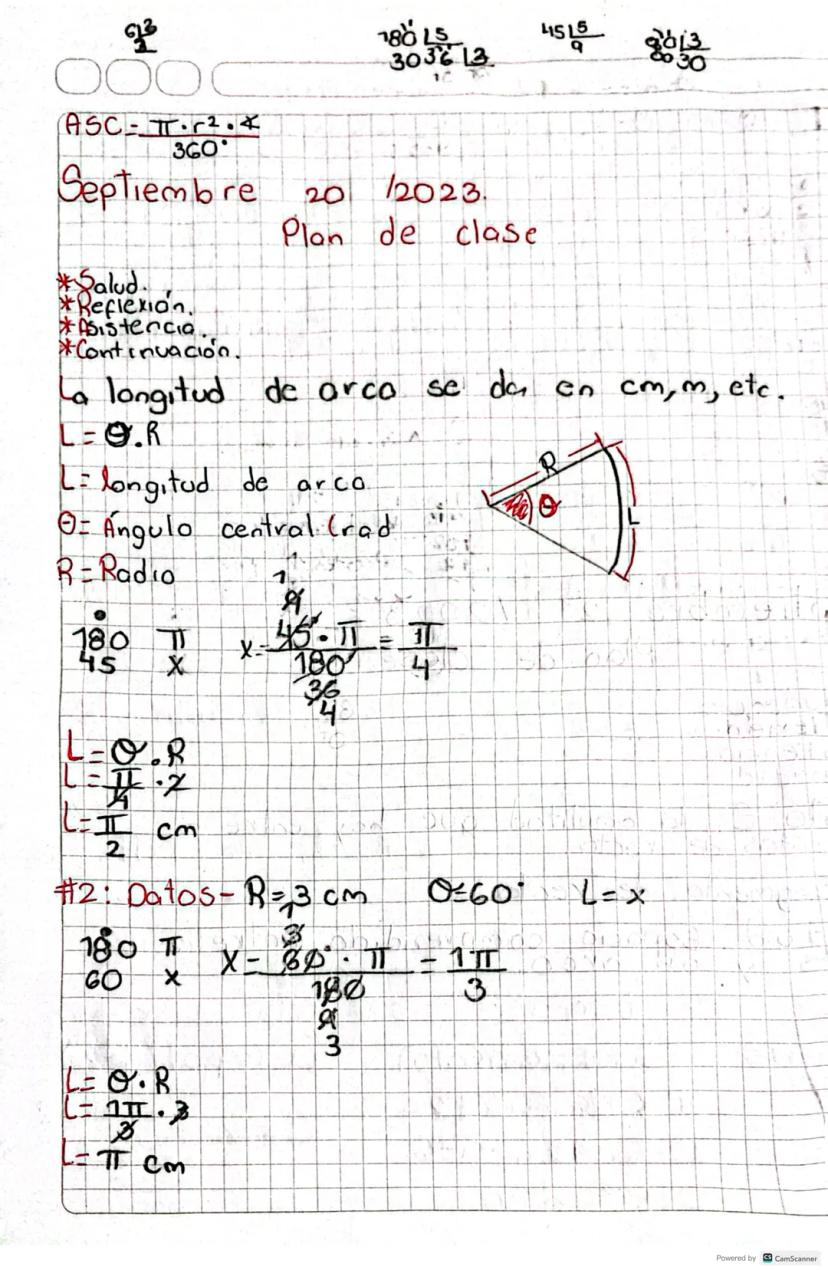 6 3
2
180 5
30 36 3
45 5
9
30
ASC = π·r²·∢
360°
Septiembre 20 /2023.
Plan de clase
*Salud.
*Reflexión.
*Asistencia.
*Continuación.
La longitud de arco se da en cm, m, etc.
L = θ.R
L = longitud de arco
θ = Ángulo central (rad
R = Radio
R
θ
L
1
9
180° π x = 45°·π = π
45 x 180° 4
36
4
L = θ.R
L = π/4 · 2
L = π/2 cm
#2: Datos - R = 3 cm θ = 60° L = x
1
3
180° π X = 60°·π = 1π
60 x 180 3
9
3
L = θ·R
L = 1π/3 · 3
L = π cm
Powered by CS CamScanner